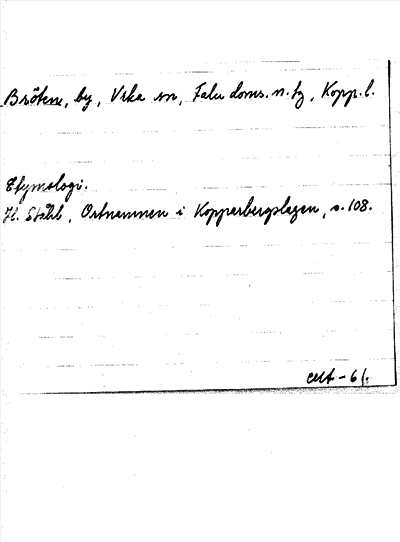 Brötene, by, Vika sn, Falu doms.n.tg, Kopp.l.
Etymologi.
H. Ståhl, Ortnamnen i Kopparbergslagen, s. 108.